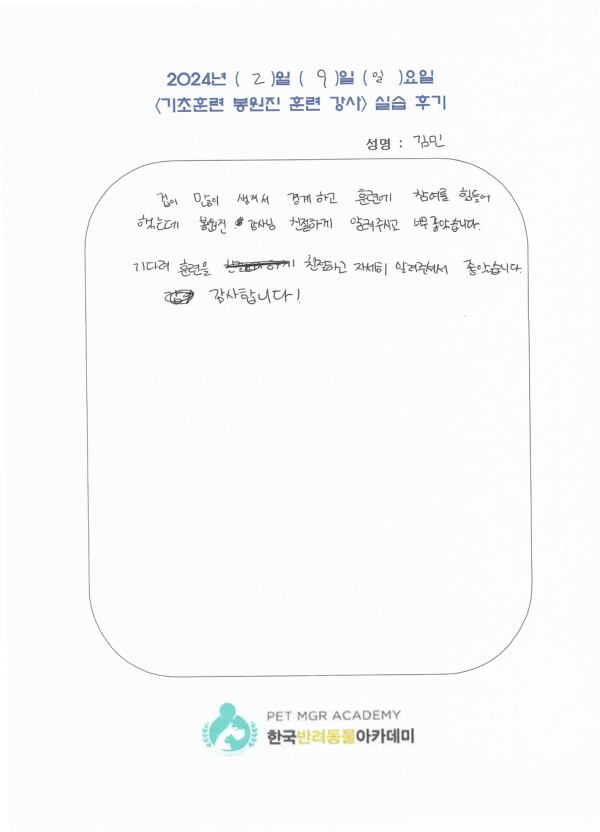 2024년 ( 2 )월 ( 9 )일 ( 일 )요일
<기초훈련 봉원진 훈련 강사> 실습 후기
성명 : 김민
겁이 많이 생겨서 경계하고 훈련에 참여를 힘들어
했는데 봉원진 강사님 친절하게 알려주시고 너무 좋았습니다.
기다려 훈련을 친절하고 자세히 알려주셔서 좋았습니다.
감사합니다!
PET MGR ACADEMY
한국반려동물아카데미